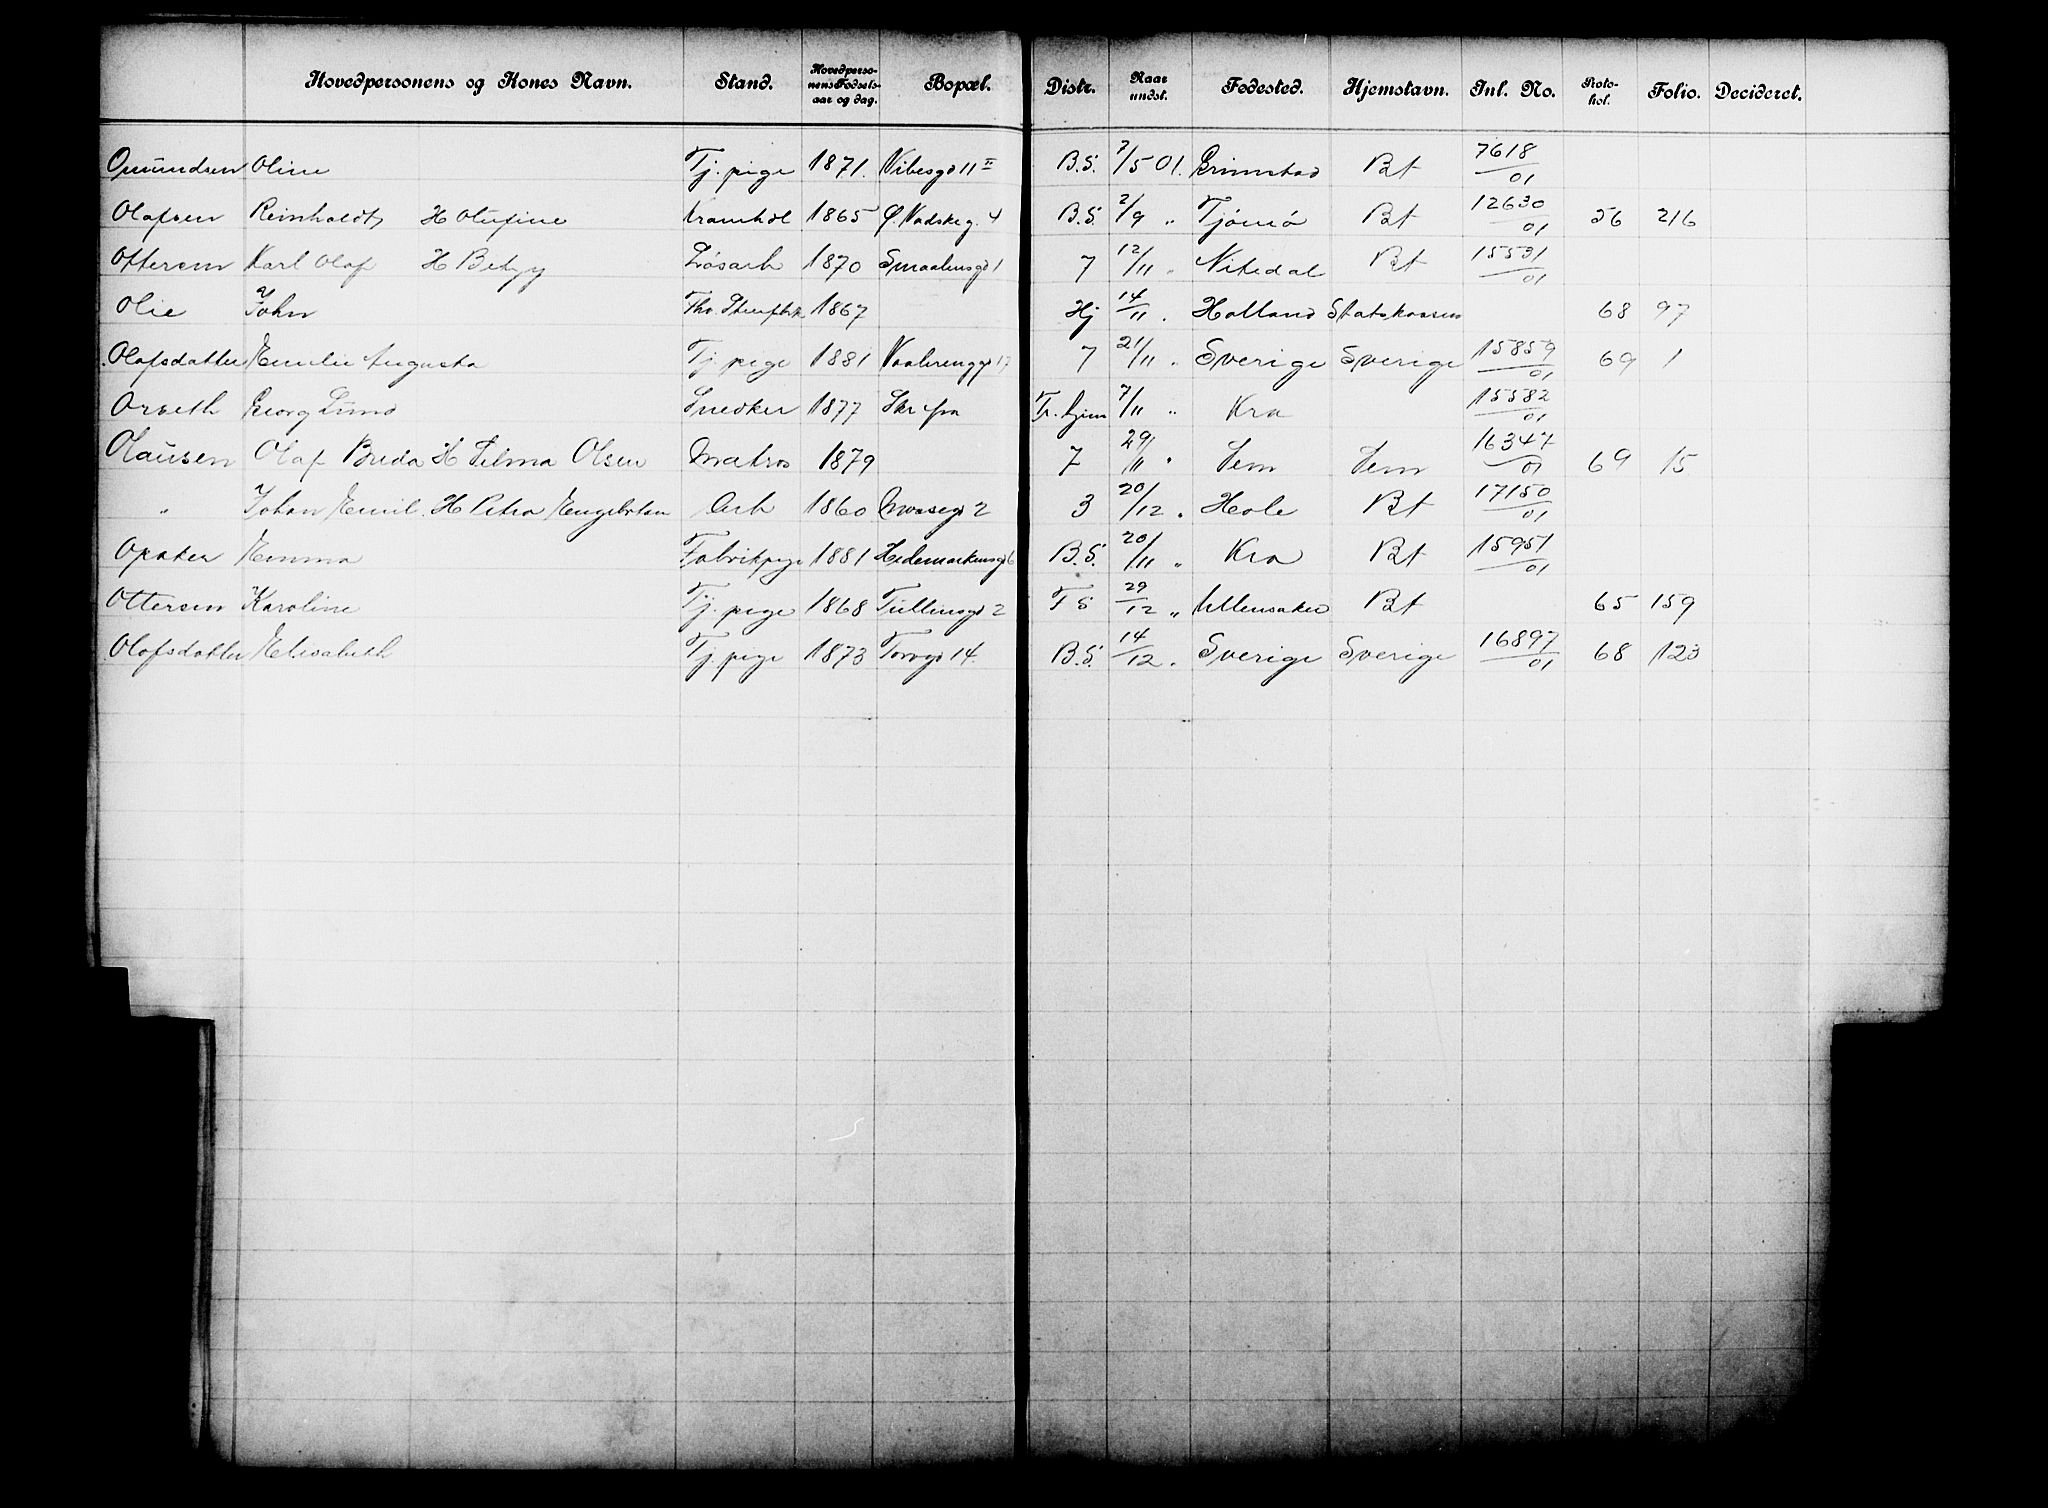 Hovedpersonens og Kones Navn. Stand. Hovedperso-nens Fødsels-aar og dag. Bopæl. Distr. Naar undst. Fødested. Hjemstavn. Inl. No. Proto-kol. Folio. Decideret.
Omundsen Oline Tj. pige 1871. Vibesgd 11 II B.S. 7/5 01. Grimstad Bt 7618/01
Olafsen Reinholdt H Olufine 1865 Ø. Vadskeg. 4 B.S. 2/9 " Tjømø Bt 12630/01 56 216
Ottersen Karl Olaf H Betzy Løsarb 1870 Smaalensgd 1 7 12/11 " Nitedal Bt 15531/01
Olie John 1867 Hj 14/11 . Holland Statskassen 68 97
Olafsdatter Emilie Augusta Tj. pige 1881 Vaalerenggd 17 7 21/11 " Sverige Sverige 15859/01 69 1
Orveth Georg Lund Snedker 1877 Skr fra Tr. hjem 7/11 " Kra 15582/01
Olausen Olaf Breda H Selma Olsen Matros 1879 7 29/11 " Sem Sem 16347/01 69 15
" Johan Emil. H Petra Engebretsen Arb 1860 Mosegd 2 3 20/12 . Hole Bt 17150/01
Opaker Emma Fabrikpige 1881 Hedemarkensgd 6 B.S. 20/11 " Kra Bt 15951/01
Ottersen Karoline Tj. pige 1868 Tullinsgd 2 FS 29/12 " Ullensaker Bt 65 159
Olafsdatter Elisabeth Tj. pige 1873 Torvgd 14. B.S. 14/12 . Sverige Sverige 16897/01 68 123